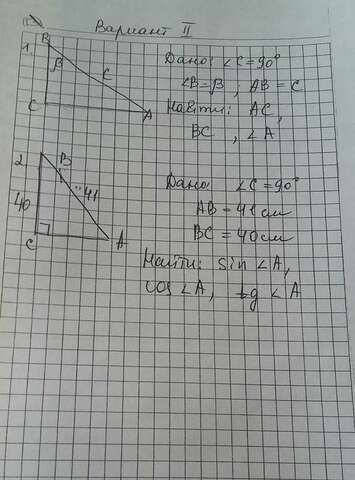 Вариант II
1.
B
β
c
C
A
Дано: ∠C=90°
∠B=β, AB=c
Найти: AC,
BC, ∠A
2
B
41
40
C
A
Дано: ∠C=90°
AB=41см
BC=40см
Найти: sin∠A,
cos∠A, tg∠A